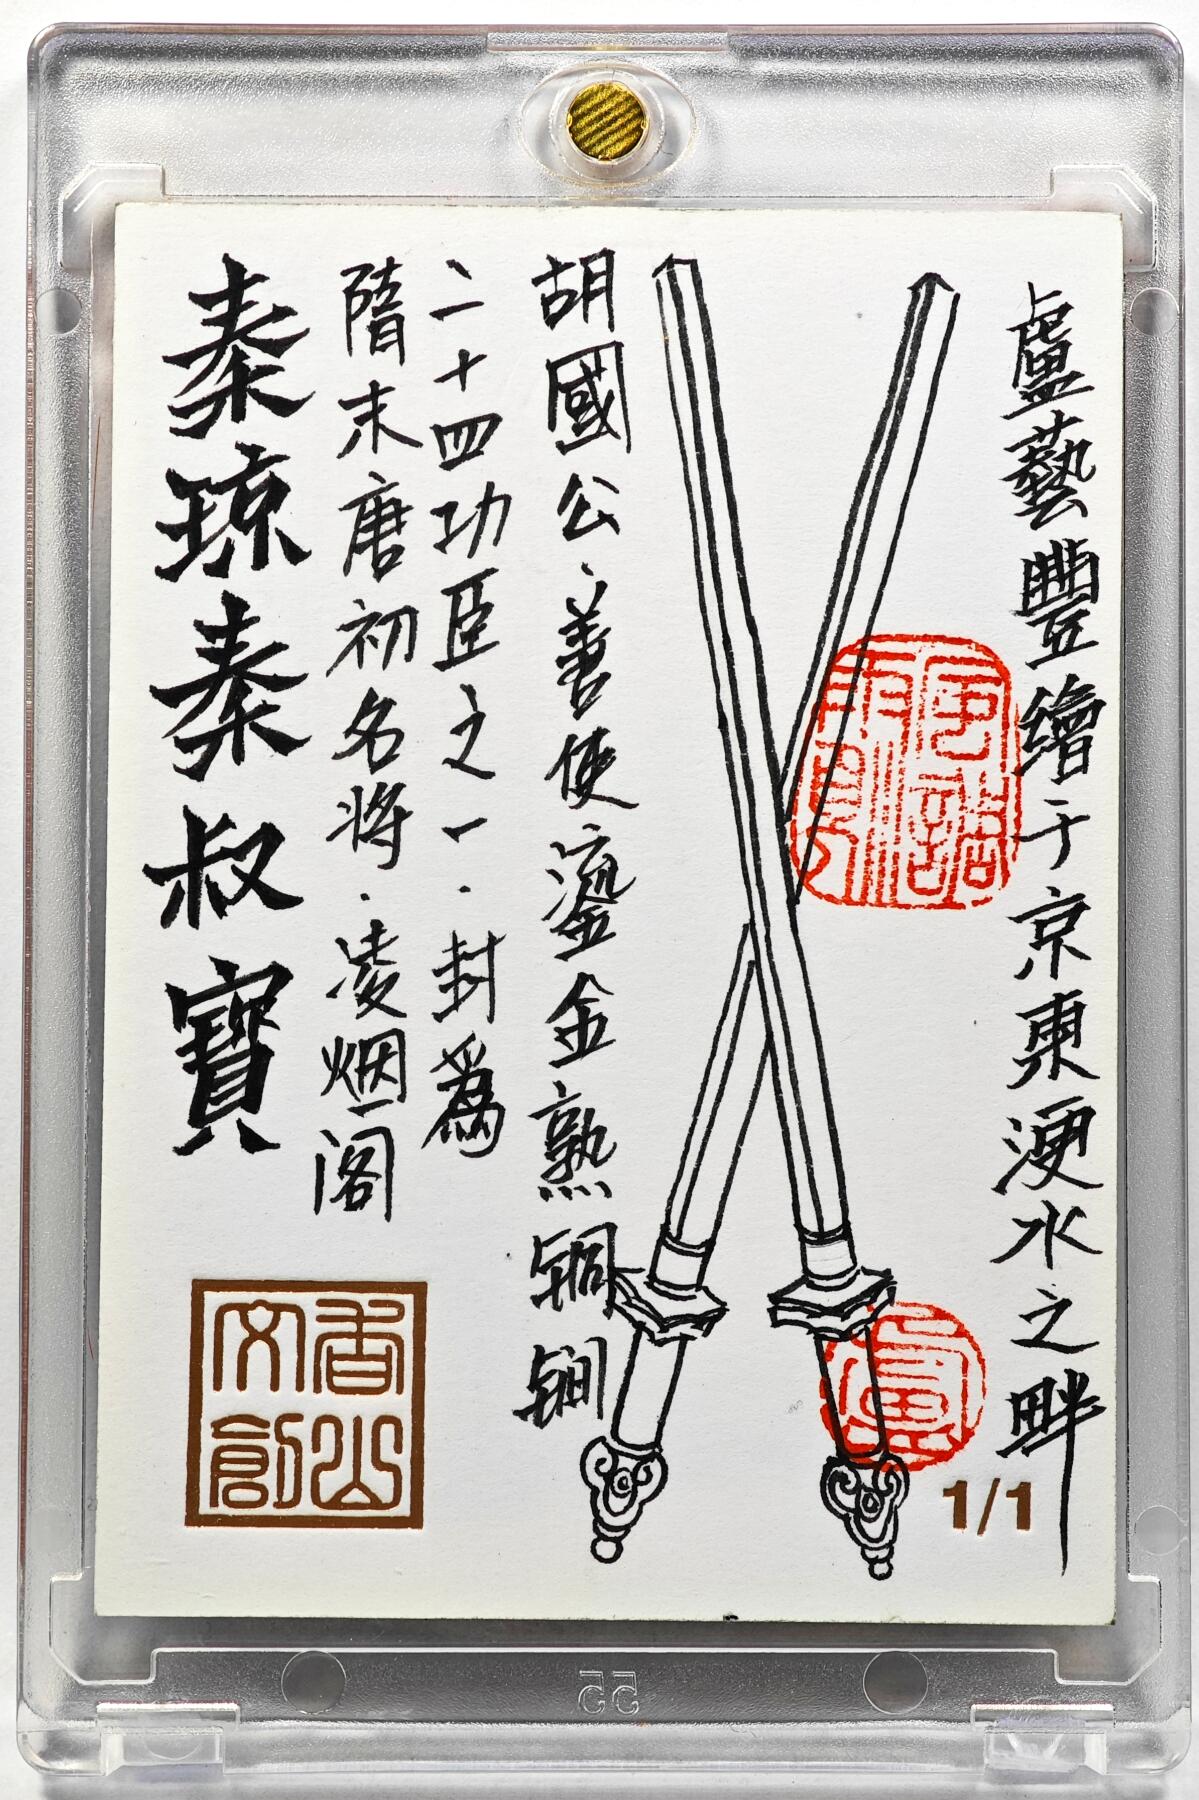 秦琼秦叔寶
隋末唐初名将·凌烟阁
二十四功臣之一·封爲
胡國公·善使鎏金熟铜锏
盧藝豐繪于京東浭水之畔
香山文創
1/1
55